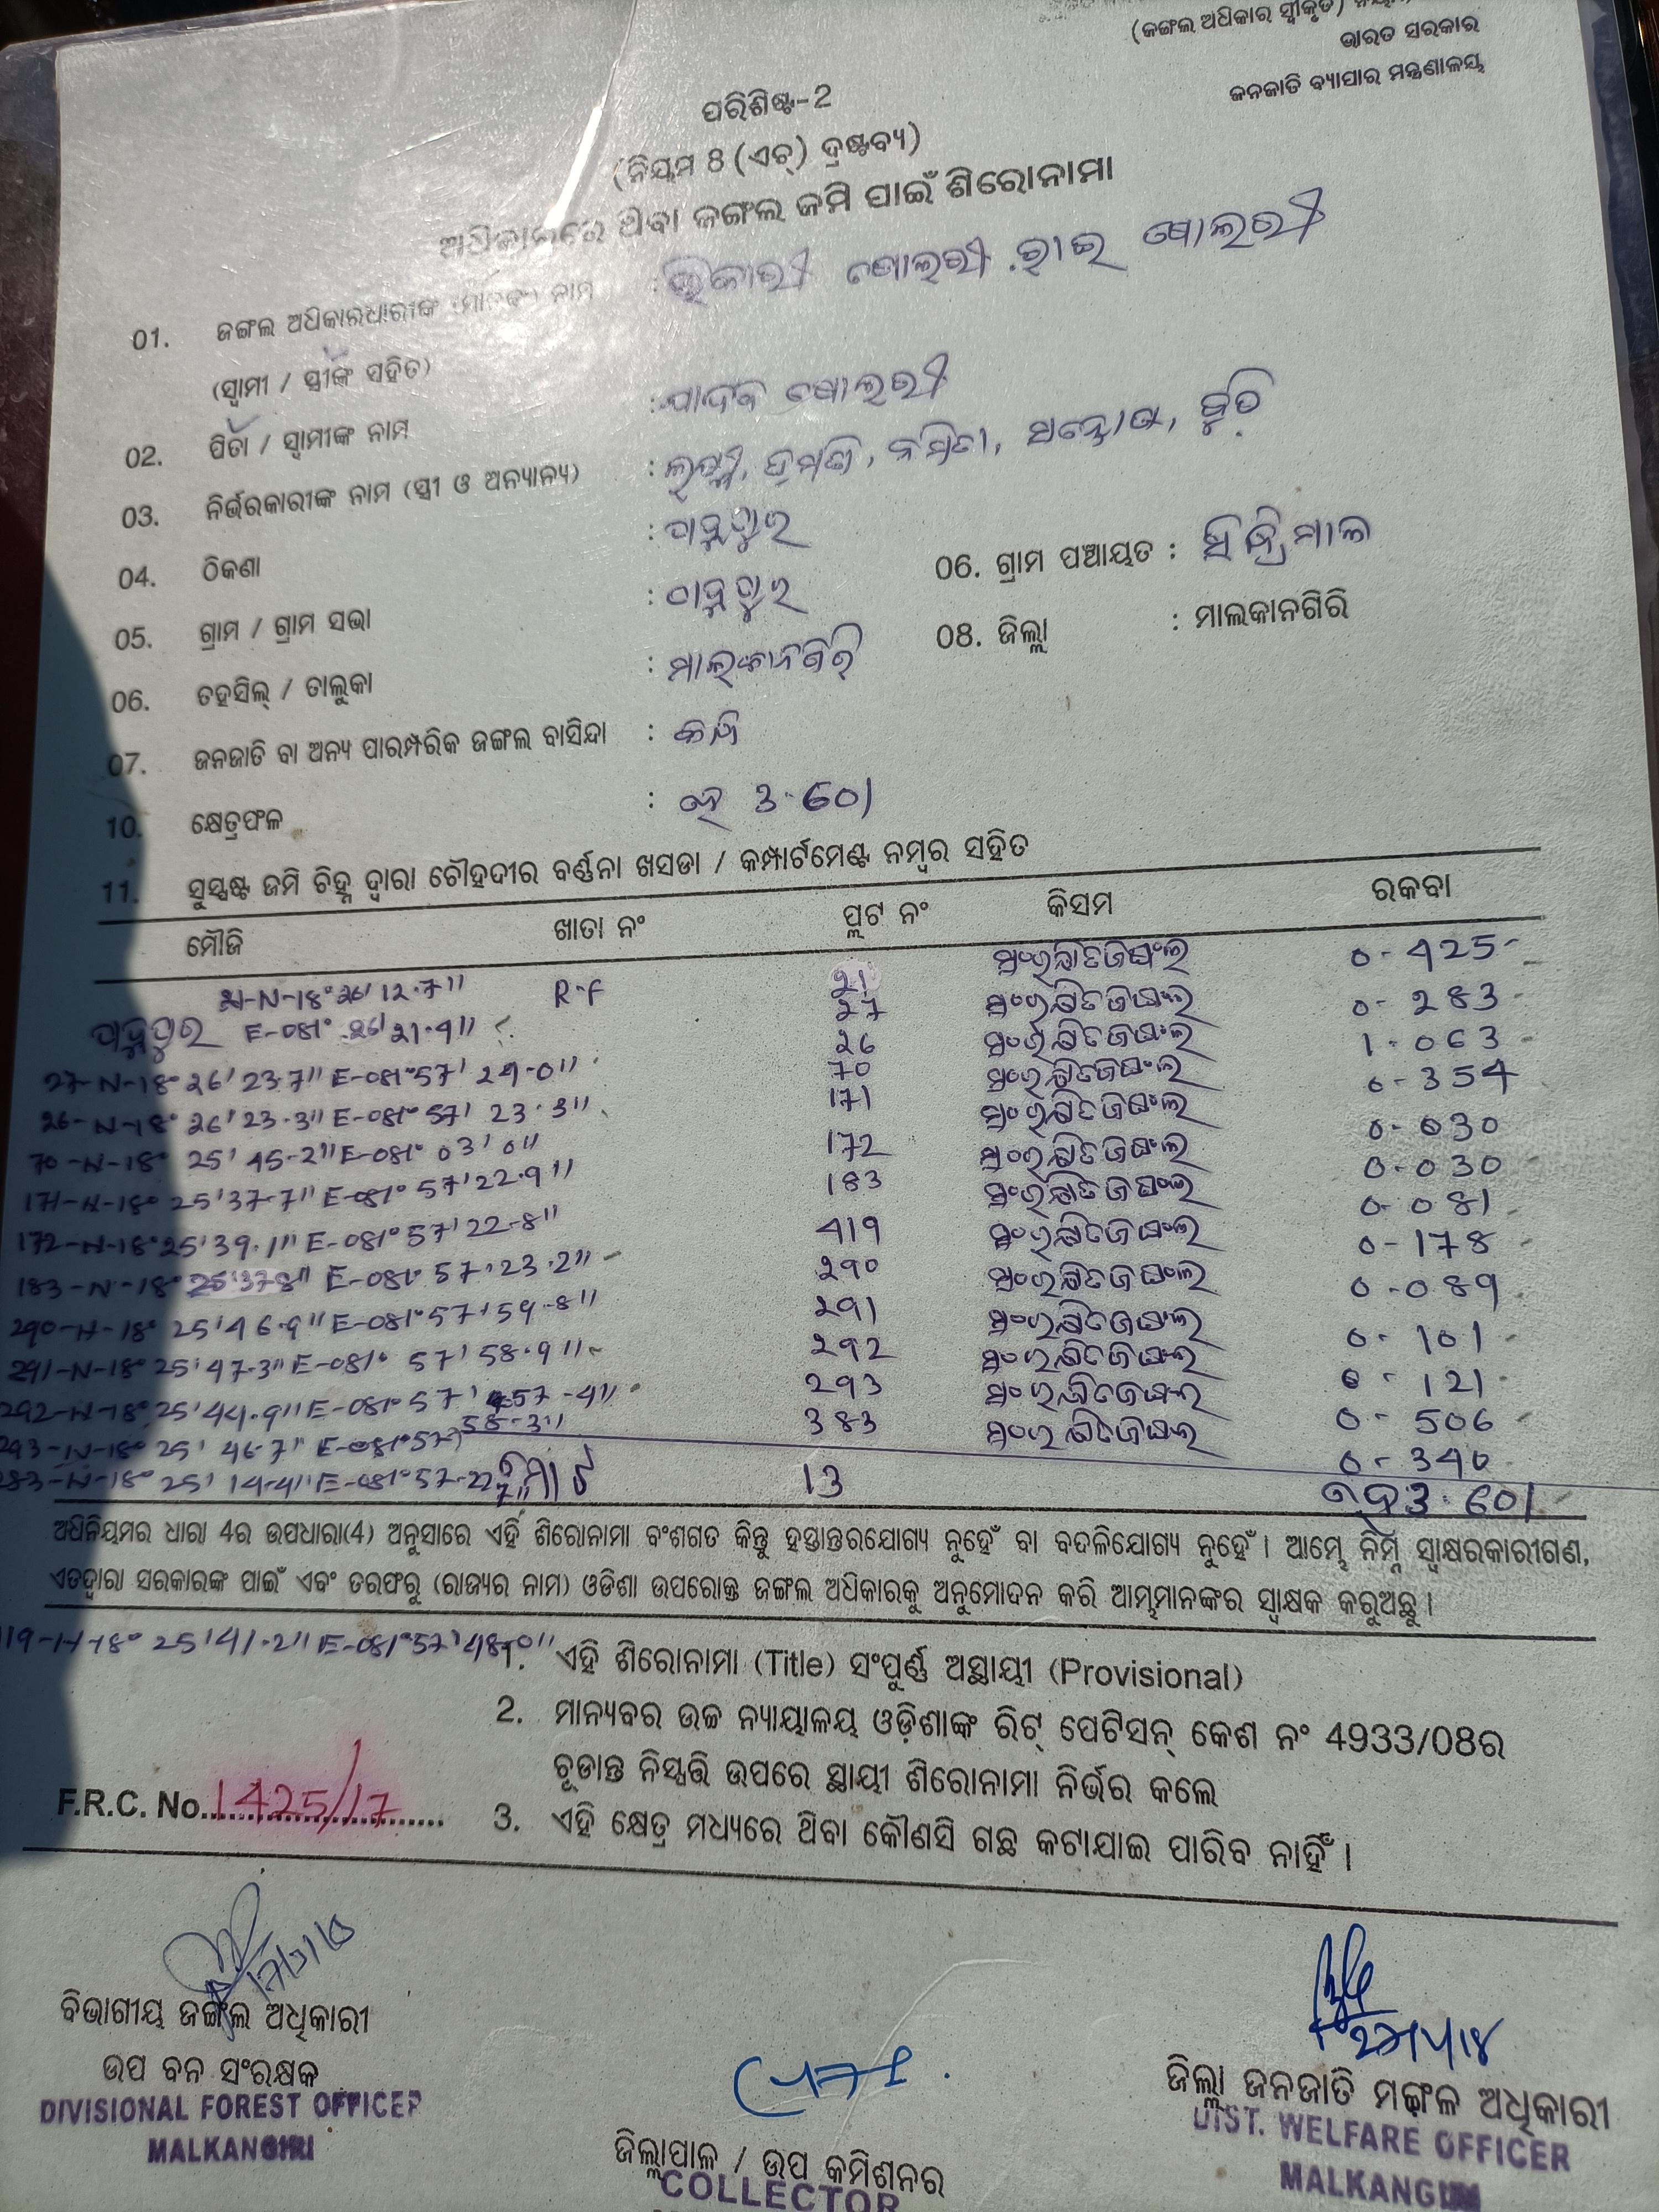 (ଜଙ୍ଗଲ ଅଧିକାର ସ୍ୱୀକୃତି)
ଭାରତ ସରକାର
ଜନଜାତି ବ୍ୟାପାର ମନ୍ତ୍ରଣାଳୟ
ପରିଶିଷ୍ଟ-2
(ନିୟମ 8 (ଏଚ୍) ଦ୍ରଷ୍ଟବ୍ୟ)
ଅଧିକାରରେ ଥିବା ଜଙ୍ଗଲ ଜମି ପାଇଁ ଶିରୋନାମା
01. ଜଙ୍ଗଲ ଅଧିକାରଧାରୀଙ୍କ ନାମ :
(ସ୍ୱାମୀ / ସ୍ତ୍ରୀଙ୍କ ସହିତ)
02. ପିତା / ସ୍ୱାମୀଙ୍କ ନାମ :
03. ନିର୍ଭରକାରୀଙ୍କ ନାମ (ସ୍ତ୍ରୀ ଓ ଅନ୍ୟାନ୍ୟ) :
04. ଠିକଣା :
05. ଗ୍ରାମ / ଗ୍ରାମ ସଭା : 06. ଗ୍ରାମ ପଞ୍ଚାୟତ :
06. ତହସିଲ୍ / ତାଲୁକା : ମାଲକାନଗିରି 08. ଜିଲ୍ଲା : ମାଲକାନଗିରି
07. ଜନଜାତି ବା ଅନ୍ୟ ପାରମ୍ପରିକ ଜଙ୍ଗଲ ବାସିନ୍ଦା :
10. କ୍ଷେତ୍ରଫଳ : ହେ 3.601
11. ସୁସ୍ପଷ୍ଟ ଜମି ଚିହ୍ନ ଦ୍ୱାରା ଚୌହଦୀର ବର୍ଣ୍ଣନା ଖସଡା / କମ୍ପାର୍ଟମେଣ୍ଟ ନମ୍ବର ସହିତ
ମୌଜି ଖାତା ନଂ ପ୍ଲଟ ନଂ କିସମ ରକବା
21-N-18° 26' 12.7" R.F 21 ସଂରକ୍ଷିତ ଜଙ୍ଗଲ 0-425
E-081° 26' 21.9" 27 ସଂରକ୍ଷିତ ଜଙ୍ଗଲ 0-283
27-N-18° 26' 23.7" E-081° 57' 24.0" 26 ସଂରକ୍ଷିତ ଜଙ୍ଗଲ 1.063
26-N-18° 26' 23.3" E-081° 57' 23.3" 70 ସଂରକ୍ଷିତ ଜଙ୍ଗଲ 0-354
70-N-18° 25' 45-2" E-081° 03' 0" 171 ସଂରକ୍ଷିତ ଜଙ୍ଗଲ 0-030
171-N-18° 25' 37-7" E-081° 57' 22.9" 172 ସଂରକ୍ଷିତ ଜଙ୍ଗଲ 0-030
172-N-18° 25' 39.1" E-081° 57' 22-8" 183 ସଂରକ୍ଷିତ ଜଙ୍ଗଲ 0-081
183-N-18° 25' 37 8" E-081° 57' 23.2" 419 ସଂରକ୍ଷିତ ଜଙ୍ଗଲ 0-178
290-N-18° 25' 46.9" E-081° 57' 59-8" 290 ସଂରକ୍ଷିତ ଜଙ୍ଗଲ 0-089
291-N-18° 25' 47.3" E-081° 57' 58.9" 291 ସଂରକ୍ଷିତ ଜଙ୍ଗଲ 0-101
292-N-18° 25' 44.9" E-081° 57' 57-4" 292 ସଂରକ୍ଷିତ ଜଙ୍ଗଲ 0-121
293-N-18° 25' 46.7" E-081° 57' 58-3" 293 ସଂରକ୍ଷିତ ଜଙ୍ଗଲ 0-506
N-18° 25' 14-4" E-081° 57-22 7" 383 ସଂରକ୍ଷିତ ଜଙ୍ଗଲ 0-340
ମୋଟ 13 3.601
ଅଧିନିୟମର ଧାରା 4ର ଉପଧାରା(4) ଅନୁସାରେ ଏହି ଶିରୋନାମା ବଂଶଗତ କିନ୍ତୁ ହସ୍ତାନ୍ତରଯୋଗ୍ୟ ନୁହେଁ ବା ବଦଳିଯୋଗ୍ୟ ନୁହେଁ । ଆମ୍ଭେ ନିମ୍ନ ସ୍ୱାକ୍ଷରକାରୀଗଣ,
ଏତଦ୍ୱାରା ସରକାରଙ୍କ ପାଇଁ ଏବଂ ତରଫରୁ (ରାଜ୍ୟର ନାମ) ଓଡିଶା ଉପରୋକ୍ତ ଜଙ୍ଗଲ ଅଧିକାରକୁ ଅନୁମୋଦନ କରି ଆମ୍ଭମାନଙ୍କର ସ୍ୱାକ୍ଷକ କରୁଅଛୁ ।
N-18° 25' 41.2" E-081° 57' 48.0"
1. ଏହି ଶିରୋନାମା (Title) ସଂପୂର୍ଣ୍ଣ ଅସ୍ଥାୟୀ (Provisional)
2. ମାନ୍ୟବର ଉଚ୍ଚ ନ୍ୟାୟାଳୟ ଓଡ଼ିଶାଙ୍କ ରିଟ୍ ପେଟିସନ୍ କେଶ ନଂ 4933/08ର
ଚୂଡାନ୍ତ ନିସ୍ପତ୍ତି ଉପରେ ସ୍ଥାୟୀ ଶିରୋନାମା ନିର୍ଭର କଲେ
F.R.C. No. 1425/17
3. ଏହି କ୍ଷେତ୍ର ମଧ୍ୟରେ ଥିବା କୌଣସି ଗଛ କଟାଯାଇ ପାରିବ ନାହିଁ ।
ବିଭାଗୀୟ ଜଙ୍ଗଲ ଅଧିକାରୀ
ଉପ ବନ ସଂରକ୍ଷକ
DIVISIONAL FOREST OFFICER
MALKANGIRI
ଜିଲ୍ଲାପାଳ / ଉପ କମିଶନର
COLLECTOR
ଜିଲ୍ଲା ଜନଜାତି ମଙ୍ଗଳ ଅଧିକାରୀ
DIST. WELFARE OFFICER
MALKANGIRI